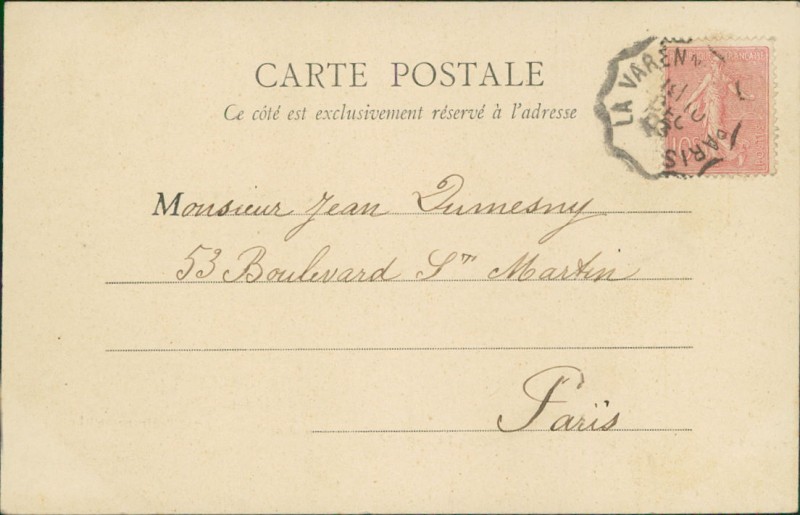 CARTE POSTALE
Ce côté est exclusivement réservé à l'adresse
LA VARENN
PARIS
10c
Monsieur Jean Dumesny
53 Boulevard St Martin
Paris